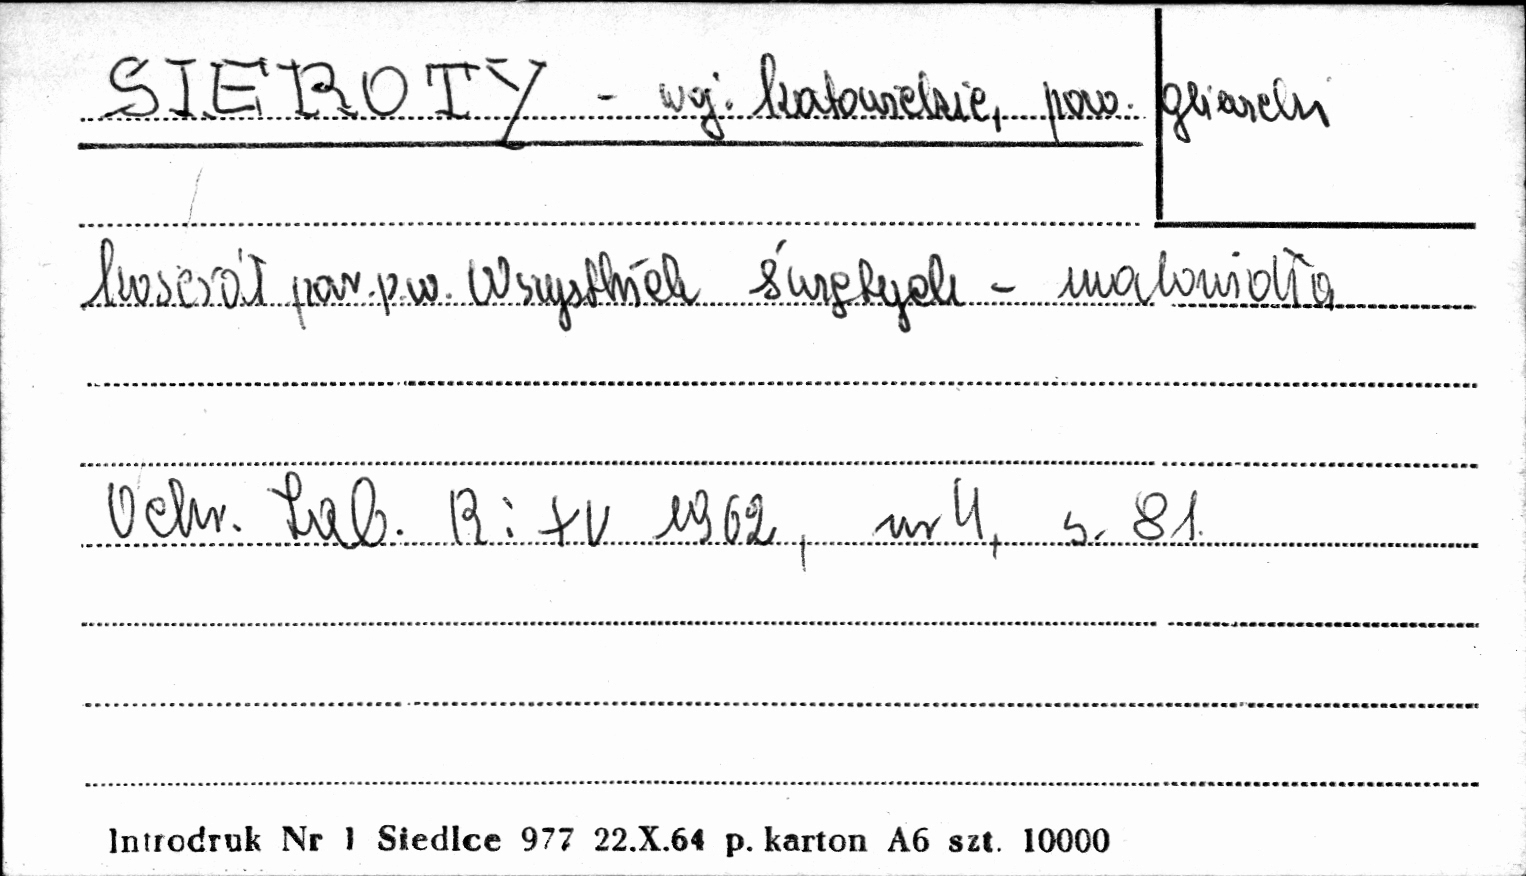 SIEROTY - woj. katowickie, pow. gliwicki
kościół par. p.w. Wszystkich Świętych - malowidła
Ochr. Zab. R: XV 1962, nr 4, s. 81.
Introdruk Nr 1 Siedlce 977 22.X.64 p. karton A6 szt. 10000